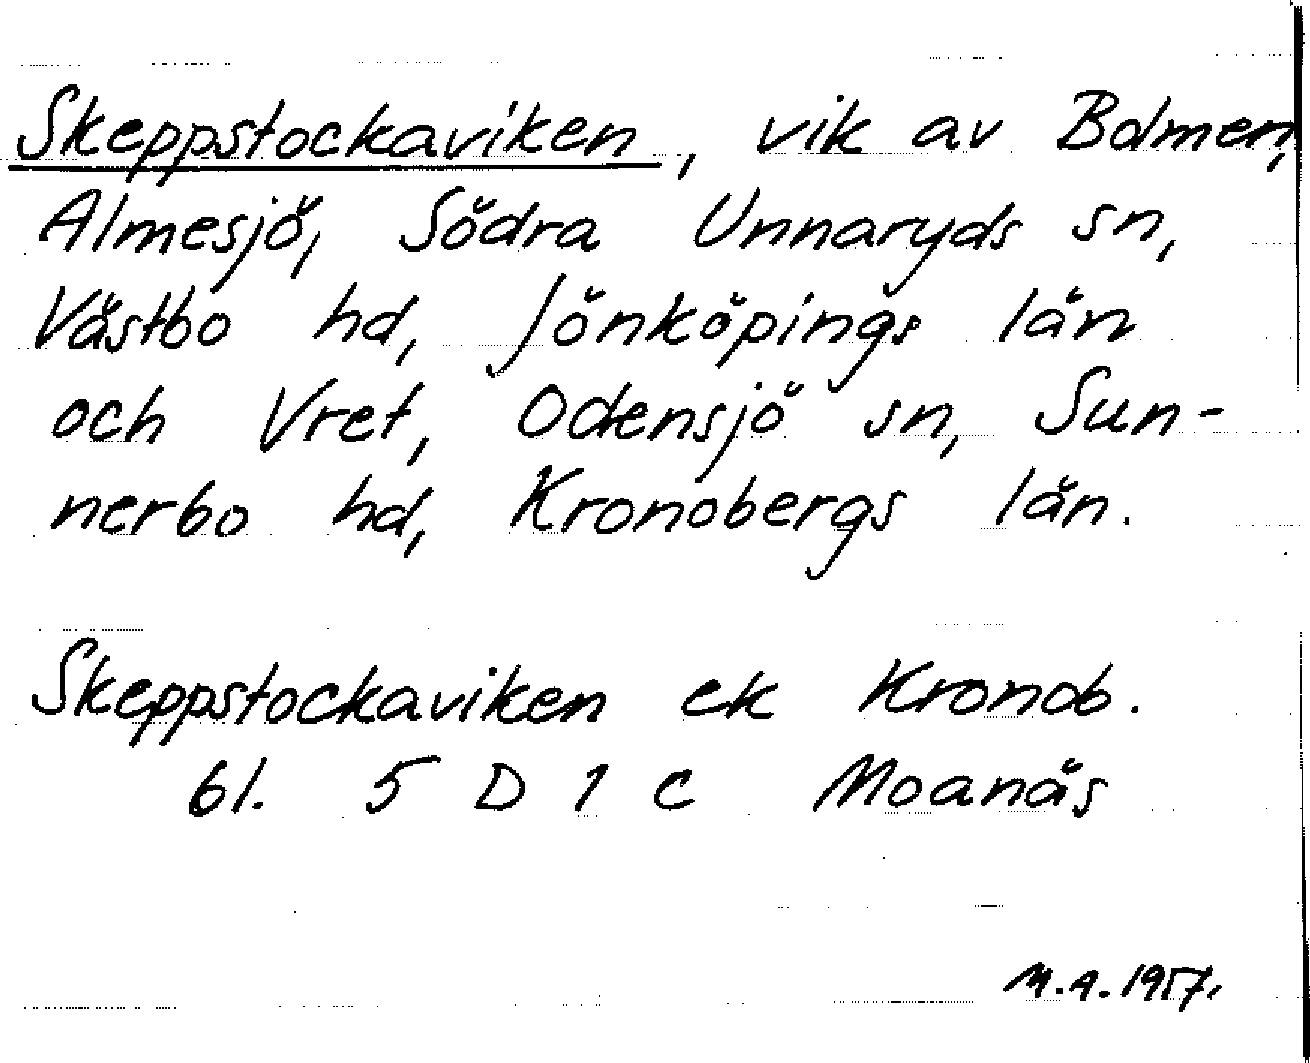 Skeppstockaviken, vik av Bolmen,
Almesjö, Södra Unnaryds sn,
Västbo hd, Jönköpings län
och Vret, Odensjö sn, Sun-
nerbo hd, Kronobergs län.
Skeppstockaviken ek Kronob.
bl. 5 D 1 c Moanäs
M.A. 1957.